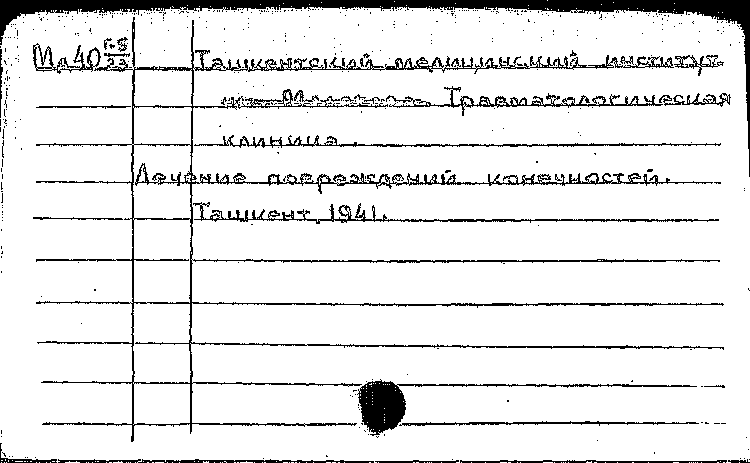 Мд40 Г-5/23 Ташкентский медицинский институт
Травматологическая
клиника.
Лечение повреждений конечностей.
Ташкент, 1941.